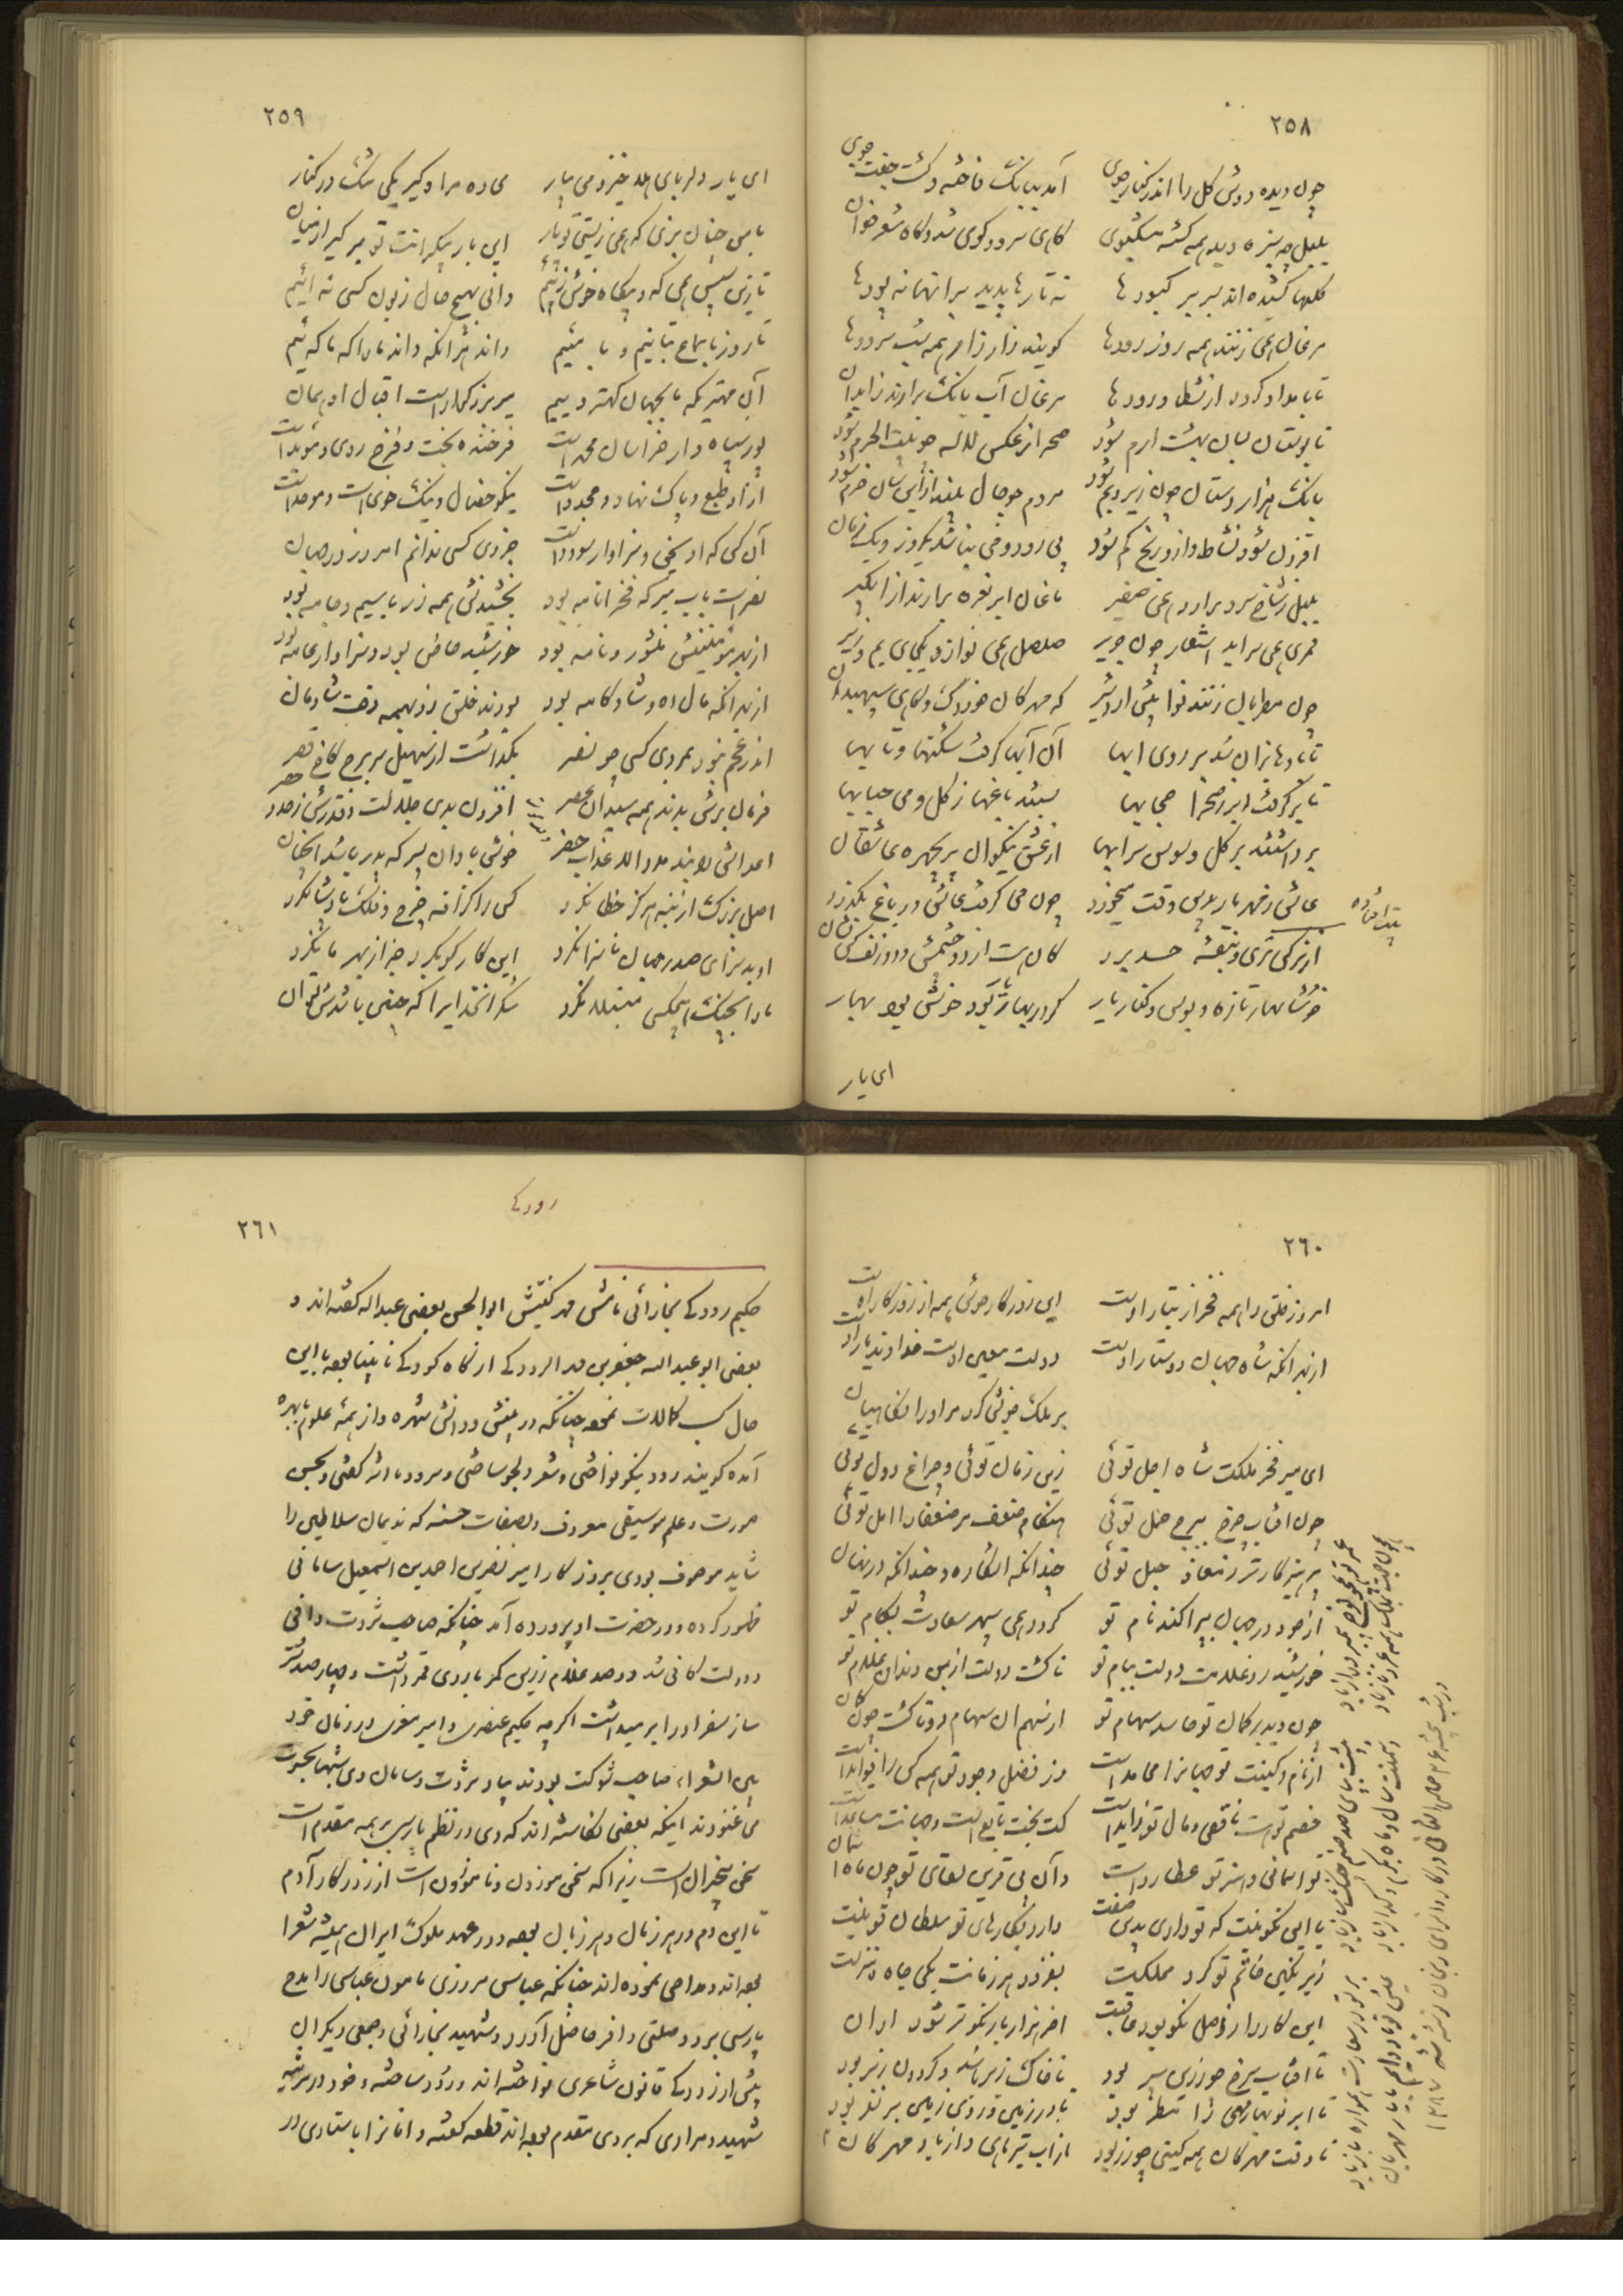 ۲۵۸
چون دیده دوش گل را اندر کنار جوی
آمد ببانگ فاخته و گشت جفت جوی
بلبل چو سبزه دید همه گشته مشکبوی
گاهی سرود گوی شد و گاه شعر خوان
گلها کشیده اند بسر بر کبودها
نه تارها پدید برانها نه پودها
مرغان همی زنند همه روز رودها
گویند زار زار همه شب سرودها
تا بامداد گردد از شط و رودها
مرغان آب بانگ برارند زابدان
تا بوستان بسان بهشت ارم شود
صحرا ز عکس لاله چو بیت الحرم شود
بانگ هزار دستان چون زیر و بم شود
مردم چو حال بیند ازین سان خرم شود
افزون شود نشاط و ازو رنج کم شود
بی رود و می نباشد یکروز و یک زمان
بلبل ز شاخ سرو برارد همی صفیر
ماغان ابر نعره برارند از ابگیر
قمری همی سراید اشعار چون جریر
صلصل همی نوازد یکجای بم و زیر
چون مطربان زنند نوا تخت اردشیر
گه مهرگان خردک و گاهی سپهبدان
تا بادها وزان شد بر روی ابها
آن آبها گرفت شکنها و تابها
تا برگرفت ابر ز صحرا حجابها
بستند باغها ز گل و می خضابها
برداشتند بر گل و سوسن سرابها
از عشق نیکوان پریچهره عاشقان
عاشق ز مهر یار بدین وقت می خورد
چون می گرفت عاشق در باغ بگذرد
یلدا فتاده
از نرگس طری و بنفشه حسد برد
کان هست از دو چشمش و دو زلف کش نشان
خوشا بهار تازه و بوس و کنار یار
گر در کنار یار بود خوش بود بهار
ای یار
۲۵۹
ای یار دلربای هلا خیز و می بیار
می ده مرا و گیر یکی تنگ در کنار
با من چنان بزی که همی زیستی تو پار
این ناز بیکرانت تو برگیر از میان
تا زین سپس همی گه و بیگاه خوش زئیم
دانی بهیچ حال زبون کسی نه ایم
تا روز با سماع بتانیم و با مئیم
داند هر انکه داند ما را که ما که ئیم
آن مهتری که ما بجهان کهتر وییم
میر بزرگوار است اقبال او همان
پور سپاه دار خراسان محمد است
فرخنده بخت و فرخ روی و مؤید است
آزاد طبع و پاک نهاد و ممجد است
نیکو خصال و نیک خوی است و موحد است
آن کس که او سخی و سزاوار سودد است
جز وی کسی ندانم امروز در جهان
نصر است باب میر که فخر انام بود
بخشیدنش همه زر با سیم و جامه بود
از بهر منتش منشور و نامه بود
خورشید خاص بود و سزاوار عامه بود
از بهر انکه مال ده و شادکامه بود
بودند خلق زو بهمه وقت شادمان
اندر عجم نبود بمردی کسی چو نصر
بگذاشت از سهیل سر برج کاخ قصر
فرمان برش بدند همه سیدان عصر
افزون بدی جلالت و قدرش ز حد و حصر
اعداش را بتند مدد الله عذاب حصر
خوش باد آن پسر که پدر باشد انچنان
اصل بزرگ از بنه هرگز خطا نکرد
کس را گزافه چرخ و فلک پادشا نکرد
او بد سزای صدر جهان ناسزا نکرد
این کار کو بکرد جز از بهر ما نکرد
ما را بچنگ هیچکس مبتلا نکرد
شکر انخدایرا که چنین باشدش توان
۲۶۰
امروز خلق را همه فخر از تبار اوست
این روزگار خوش همه از روزگار اوست
از بهر انکه شاه جهان دوستار اوست
دولت معین اوست خداوند یار اوست
بر ملک خوئی کرد مر او را نگاهبان
ای میر فخر مملکت شاه اجل توئی
زین زمان توئی و چراغ دول توئی
چون افتاب چرخ ببرج حمل توئی
هنگام ضعف مر ضعفا را امل توئی
پرهیزگارتر ز معاذ جبل توئی
چندانکه اشکاره و چندانکه در نهان
از جود در جهان بپراکند نام تو
گردد همی سپهر سعادت بکام تو
خورشید زد علامت دولت ببام تو
تا گشت دولت از بن دندان غلام تو
چون دید بر کمان تو حاسد سهام تو
از سهم آن سهام دوتا گشت چون کمان
از نام و کنیت تو جهانرا محامد است
وز فضل و جود تو همه کس را فواید است
خصم تو هست ناقص و مال تو زاید است
کت بخت تابع است و جهانت مساعد است
تو اسمانی و هنر تو عطارد است
وان بی قرین لقای تو چون ماه اسمان
با این نکو نیت که تو داری بدین صفت
دارد نگارهای تو سلطان تو بلیت
زیر نگین خاتم تو کرد مملکت
بفزود هر زمانت یکی جاه و منزلت
این کار را ز اصل نکو بود عاقبت
اخر هزار بار نکوتر شود از ان
تا افتاب سرخ چو زرین سپر بود
تا خاک زیر باشد و گردون زبر بود
تا ابر نوبهار مهی را مطر بود
تا در زمین و روی زمین بر نفر بود
تا وقت مهرگان همه گیتی چو زر بود
از آب تیر ماهی و از باد مهرگان
عمر تو همچو نوح پیمبر دراز باد
همچون جمت بملک همه عز و ناز باد
پیشت بپای صد صنم چنگ ساز باد
دشمنت سال و ماه بگرم و گداز باد
بر تو در سعادت همواره باز باد
عیش تو باد دایم با یار مهربان
۲۶۱
رودکی
حکیم رودکی بخارائی نامش محمد کنیتش ابوالحسن بعضی عبدالله گفته اند و
بعضی ابو عبدالله جعفر بن محمد الرودکی از گاه کودکی نابینا بوده با این
حال کسب کمالات نموده چنانکه در بینش و دانش شهره و از همهٔ علوم بهره
آمده گویند رود نیکو نواختی و شعر دلجو ساختی و سرود دلکش گفتی و بحسن
صورت و علم موسیقی معروف و بصفات حسنه که ندیمان سلاطین را
شاید موصوف بودی بروزگار امیر نصر بن احمد بن اسمعیل سامانی
ظهور کرده و در حضرت او پرورده آمد چنانکه صاحب ثروت وافی
و دولت کافی شد دویصد غلام زرین کمر با روی قمر داشت و چهار صد شتر
ساز سفر او را بر میداشت اگر چه حکیم عنصری و امیر معزی در زمان خود
بین الشعراء صاحب شوکت بودند بپاد ثروت و سامان وی شبها بحسرت
می غنودند اینکه بعضی نگاشته اند که وی در نظم پارسی بر همه مقدم است
سخن سخیران است زیرا که سخن موزون و ناموزون است از روزگار آدم
تا این دم در هر زمان و هر زبان بوده و در عهد ملوک ایران همیشه شعرا
بوده اند و مداحی نموده اند چنانکه عباس مروزی مامون عباسی را بمدح
پارسی سرود و صلتی وافر حاصل آورد و شهید بخارائی و جمعی دیگر ان
پیش از رودکی قانون شاعری نواخته اند و رود ساخته و خود در مرثیه
شهید و مرادی که بر وی مقدم بوده اند قطعه گفته و انانرا باستادی در